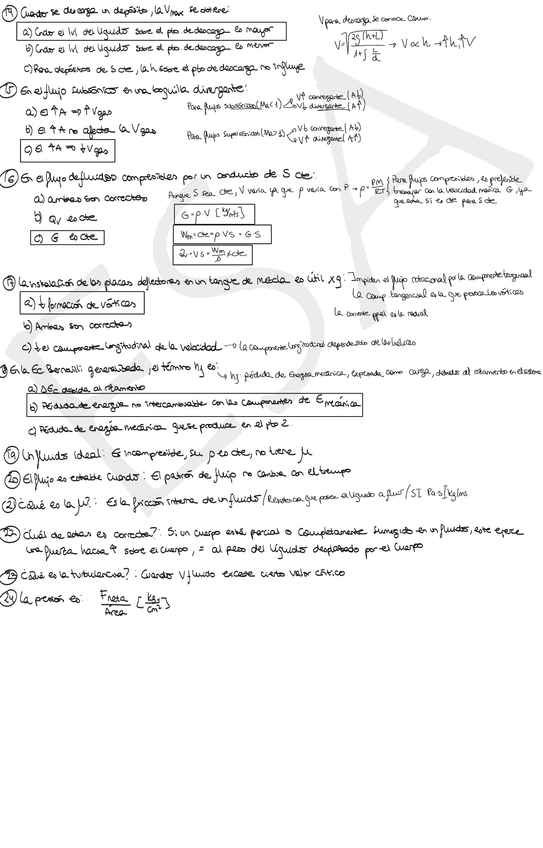 14 Cuando se descarga un depósito, la Vmax se obtiene:
a) Cdo el lvl del líquido sobre el pto de descarga es mayor
b) Cdo el lvl del líquido sobre el pto de descarga es menor
c) Para depósitos de S cte, la h sobre el pto de descarga no influye
V para descarga se conoce como:
V = √(2g(h+L) / 1+f L/d) → V ∝ h → ↑h, ↑V
15 En el flujo subsónico en una boquilla divergente:
a) El ↑A ⇒ ↑Vgas
b) El ↑A no afecta la Vgas
c) El ↑A ⇒ ↓Vgas
Para flujos subsónicos (Ma<1) V↑ convergente (A↓)
V↓ divergente (A↑)
Para flujos supersónicos (Ma>1) V↓ convergente (A↓)
V↑ divergente (A↑)
16 En el flujo de fluidos compresibles por un conducto de S cte:
a) ambas son correctas
b) Qv es cte
c) G es cte
Aunque S sea cte, V varía ya que ρ varía con P → ρ = PM/RT
Para flujos compresibles, es preferible
trabajar con la velocidad másica G, ya
que esta sí es cte para S cte
G = ρ V [kg/m²s]
Wm = cte = ρ V S = G·S
Q = V S = Wm/ρ ≠ cte
17 La instalación de las placas deflectoras en un tanque de mezcla es útil xq: Impiden el flujo rotacional por la componente tangencial
a) ↓ formación de vórtices
la comp. tangencial es la que provoca los vórtices
b) Ambas son correctas
la corriente ppal es la radial
c) ↓ el componente longitudinal de la velocidad → la componente longitudinal depende solo de las hélices
18 En la Ec Bernoulli generalizada, el término hf es:
hf: pérdida de energía mecánica, expresada como carga, debido al rozamiento en el sistema
a) ΔEc debida al rozamiento
b) Pérdida de energía no intercambiable con las componentes de Emecánica
c) Pérdida de energía mecánica que se produce en el pto 2
19 Un fluido ideal: Es incompresible, su ρ es cte, no tiene μ
20 El flujo es estable cuando: El patrón de flujo no cambia con el tiempo
21 ¿Qué es la μ?: Es la fricción interna de un fluido / Resistencia que posee el líquido a fluir / SI Pa·s [kg/ms
22 ¿Cuál de estas es correcta?: Si un cuerpo está parcial o completamente sumergido en un fluido, este ejerce
una fuerza hacia ↑ sobre el cuerpo, = al peso del líquido desplazado por el cuerpo
23 ¿Qué es la turbulencia?: Cuando V fluido excede cierto valor crítico
24 La presión es: Fneta/Área [kgf/cm²]